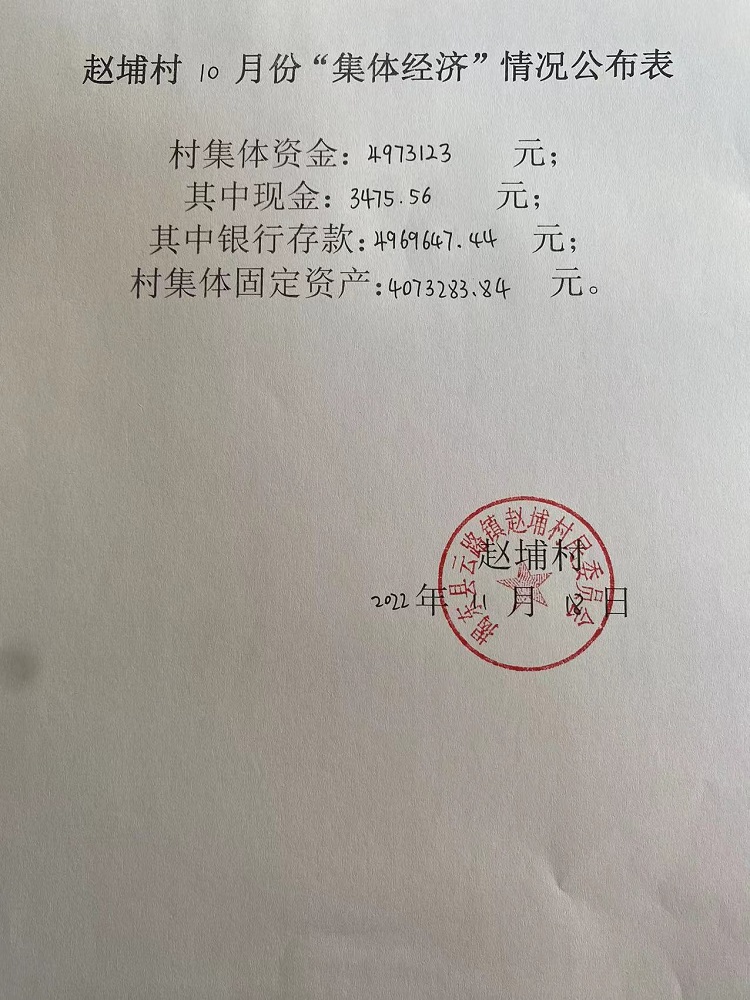 赵埔村 10 月份“集体经济”情况公布表
村集体资金：4973123 元；
其中现金：3475.56 元；
其中银行存款：4969647.44 元；
村集体固定资产：4073283.84 元。
揭东县云路镇赵埔村民委员会
赵埔村
2022 年 11 月 18 日